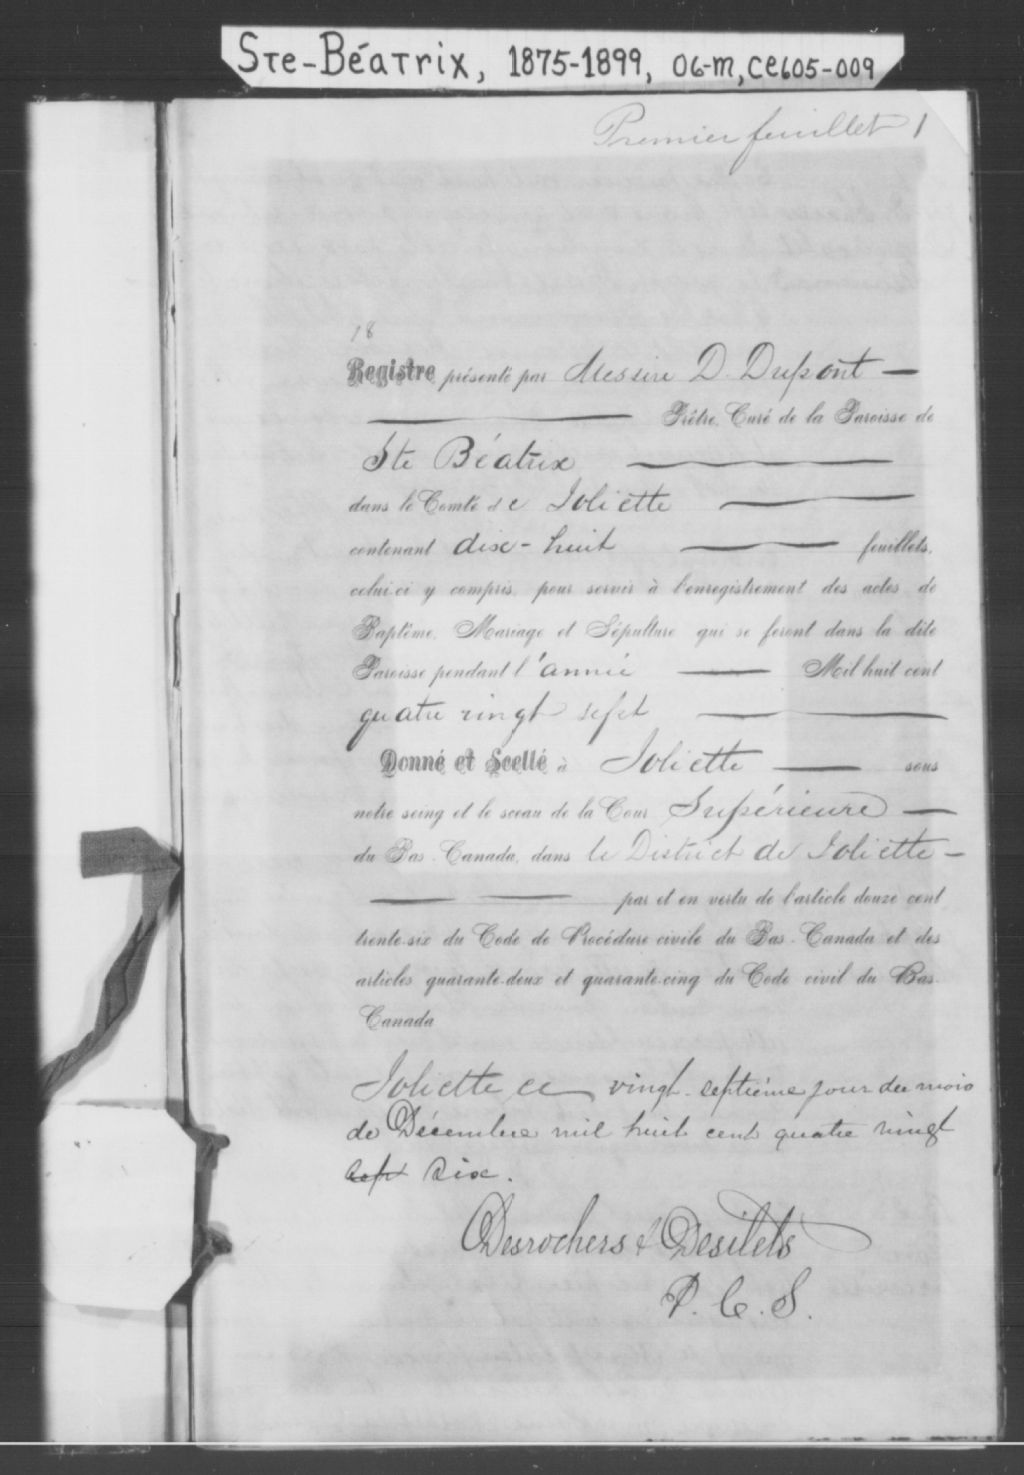 Ste-Béatrix, 1875-1899, 06-M, CE605-009
Premier feuillet 1
18
Registre présenté par Messire D. Dupont —
— Prêtre, Curé de la Paroisse de
Ste Béatrix —
dans le Comté de Joliette —
contenant dix-huit — feuillets,
celui-ci y compris, pour servir à l'enregistrement des actes de
Baptême, Mariage et Sépulture qui se feront dans la dite
Paroisse pendant l'année — Mil huit cent
quatre vingt sept —
Donné et Scellé à Joliette — sous
notre seing et le sceau de la Cour Supérieure —
du Bas-Canada, dans le District de Joliette —
— — par et en vertu de l'article douze cent
trente-six du Code de Procédure civile du Bas-Canada et des
articles quarante-deux et quarante-cinq du Code civil du Bas-
Canada
Joliette ce vingt-septième jour du mois
de Décembre mil huit cent quatre vingt
sept six.
Desrochers & Desilets
P. C. S.